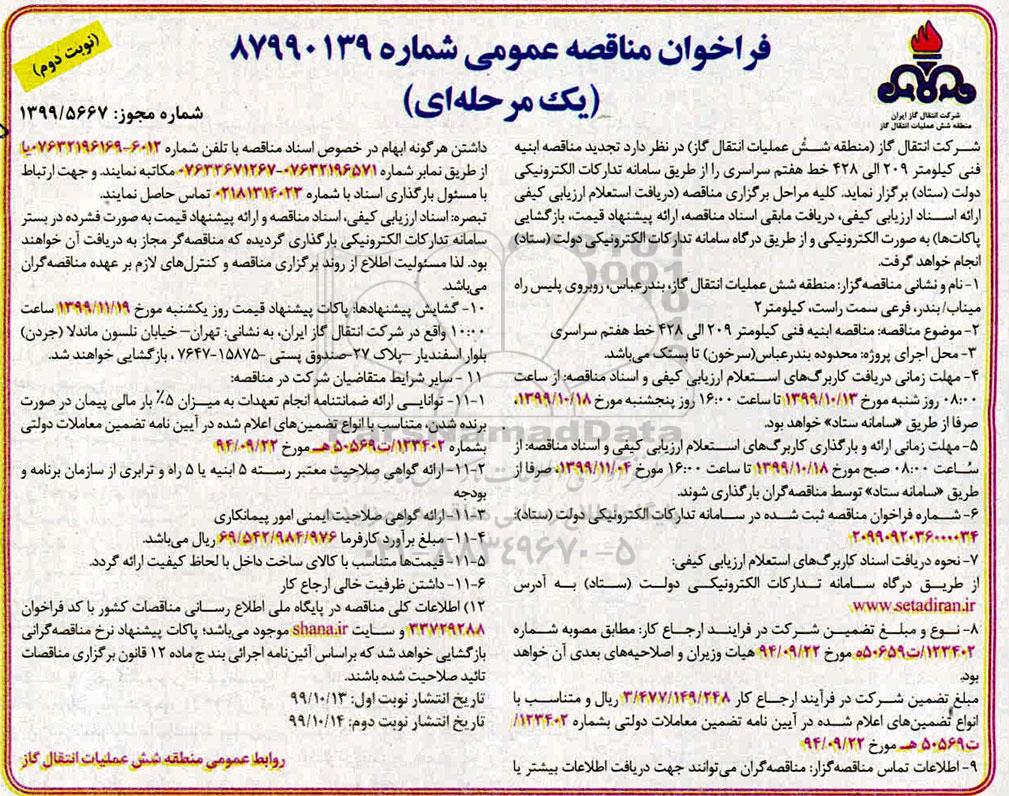 (نوبت دوم)
فراخوان مناقصه عمومی شماره ۸۷۹۹۰۱۳۹
(یک مرحله‌ای)
شماره مجوز: ۱۳۹۹/۵۶۶۷
شرکت انتقال گاز ایران
منطقه شش عملیات انتقال گاز
شرکت انتقال گاز (منطقه شش عملیات انتقال گاز) در نظر دارد تجدید مناقصه ابنیه
فنی کیلومتر ۲۰۹ الی ۴۲۸ خط هفتم سراسری را از طریق سامانه تدارکات الکترونیکی
دولت (ستاد) برگزار نماید. کلیه مراحل برگزاری مناقصه (دریافت استعلام ارزیابی کیفی
ارائه اسناد ارزیابی کیفی، دریافت مابقی اسناد مناقصه، ارائه پیشنهاد قیمت، بازگشایی
پاکات‌ها) به صورت الکترونیکی و از طریق درگاه سامانه تدارکات الکترونیکی دولت (ستاد)
انجام خواهد گرفت.
۱- نام و نشانی مناقصه‌گزار: منطقه شش عملیات انتقال گاز، بندرعباس، روبروی پلیس راه
میناب/ بندر، فرعی سمت راست، کیلومتر۲
۲- موضوع مناقصه: مناقصه ابنیه فنی کیلومتر ۲۰۹ الی ۴۲۸ خط هفتم سراسری
۳- محل اجرای پروژه: محدوده بندرعباس(سرخون) تا بستک می‌باشد.
۴- مهلت زمانی دریافت کاربرگ‌های استعلام ارزیابی کیفی و اسناد مناقصه: از ساعت
۰۸:۰۰ روز شنبه مورخ ۱۳۹۹/۱۰/۱۳ تا ساعت ۱۶:۰۰ روز پنجشنبه مورخ ۱۳۹۹/۱۰/۱۸،
صرفا از طریق «سامانه ستاد» خواهد بود.
۵- مهلت زمانی ارائه و بارگذاری کاربرگ‌های استعلام ارزیابی کیفی و اسناد مناقصه: از
ساعت ۰۸:۰۰ صبح مورخ ۱۳۹۹/۱۰/۱۸ تا ساعت ۱۶:۰۰ مورخ ۱۳۹۹/۱۱/۰۴، صرفا از
طریق «سامانه ستاد» توسط مناقصه‌گران بارگذاری شوند.
۶- شماره فراخوان مناقصه ثبت شده در سامانه تدارکات الکترونیکی دولت (ستاد):
۲۰۹۹۰۹۲۰۳۶۰۰۰۰۳۴
۷- نحوه دریافت اسناد کاربرگ‌های استعلام ارزیابی کیفی:
از طریق درگاه سامانه تدارکات الکترونیکی دولت (ستاد) به آدرس
www.setadiran.ir
۸- نوع و مبلغ تضمین شرکت در فرایند ارجاع کار: مطابق مصوبه شماره
۱۲۳۴۰۲/ت۵۰۶۵۹ه مورخ ۹۴/۰۹/۲۲ هیات وزیران و اصلاحیه‌های بعدی آن خواهد
بود.
مبلغ تضمین شرکت در فرآیند ارجاع کار ۳/۴۷۷/۱۴۹/۲۴۸ ریال و متناسب با
انواع تضمین‌های اعلام شده در آیین نامه تضمین معاملات دولتی بشماره ۱۲۳۴۰۲/
ت۵۰۵۶۹ هـ مورخ ۹۴/۰۹/۲۲
۹- اطلاعات تماس مناقصه‌گزار: مناقصه‌گران می‌توانند جهت دریافت اطلاعات بیشتر یا
داشتن هرگونه ابهام در خصوص اسناد مناقصه با تلفن شماره ۶۰۱۲-۰۷۶۳۲۱۹۶۱۶۹ یا
از طریق نمابر شماره ۰۷۶۳۲۱۹۶۵۷۱-۰۷۶۳۳۶۷۱۲۶۷ مکاتبه نمایند. و جهت ارتباط
با مسئول بارگذاری اسناد با شماره ۰۲۱۸۱۳۱۴۰۲۳ تماس حاصل نمایند.
تبصره: اسناد ارزیابی کیفی، اسناد مناقصه و ارائه پیشنهاد قیمت به صورت فشرده در بستر
سامانه تدارکات الکترونیکی بارگذاری گردیده که مناقصه‌گر مجاز به دریافت آن خواهند
بود. لذا مسئولیت اطلاع از روند برگزاری مناقصه و کنترل‌های لازم بر عهده مناقصه‌گران
می‌باشد.
۱۰- گشایش پیشنهادها: پاکات پیشنهاد قیمت روز یکشنبه مورخ ۱۳۹۹/۱۱/۱۹ ساعت
۱۰:۰۰ واقع در شرکت انتقال گاز ایران، به نشانی: تهران– خیابان نلسون ماندلا (جردن)
بلوار اسفندیار –پلاک ۲۷-صندوق پستی -۱۵۸۷۵-۷۶۴۷ ، بازگشایی خواهند شد.
۱۱ - سایر شرایط متقاضیان شرکت در مناقصه:
۱۱-۱- توانایی ارائه ضمانتنامه انجام تعهدات به میزان ۵٪ بار مالی پیمان در صورت
برنده شدن، متناسب با انواع تضمین‌های اعلام شده در آیین نامه تضمین معاملات دولتی
بشماره ۱۲۳۴۰۲/ت۵۰۵۶۹ هـ مورخ ۹۴/۰۹/۲۲
۱۱-۲- ارائه گواهی صلاحیت معتبر رسته ۵ ابنیه یا ۵ راه و ترابری از سازمان برنامه و
بودجه
۱۱-۳- ارائه گواهی صلاحیت ایمنی امور پیمانکاری
۱۱-۴- مبلغ برآورد کارفرما ۶۹/۵۴۲/۹۸۴/۹۷۶ ریال می‌باشد.
۱۱-۵- قیمت‌ها متناسب با کالای ساخت داخل با لحاظ کیفیت ارائه گردد.
۱۱-۶- داشتن ظرفیت خالی ارجاع کار
۱۲) اطلاعات کلی مناقصه در پایگاه ملی اطلاع رسانی مناقصات کشور با کد فراخوان
۳۳۷۲۹۲۸۸ و سایت shana.ir موجود می‌باشد؛ پاکات پیشنهاد نرخ مناقصه‌گرانی
بازگشایی خواهد شد که براساس آئین‌نامه اجرائی بند ج ماده ۱۲ قانون برگزاری مناقصات
تائید صلاحیت شده باشند.
تاریخ انتشار نوبت اول: ۹۹/۱۰/۱۳
تاریخ انتشار نوبت دوم: ۹۹/۱۰/۱۴
روابط عمومی منطقه شش عملیات انتقال گاز
۰۲۱-۸۸۳۴۹۶۷۰-۵